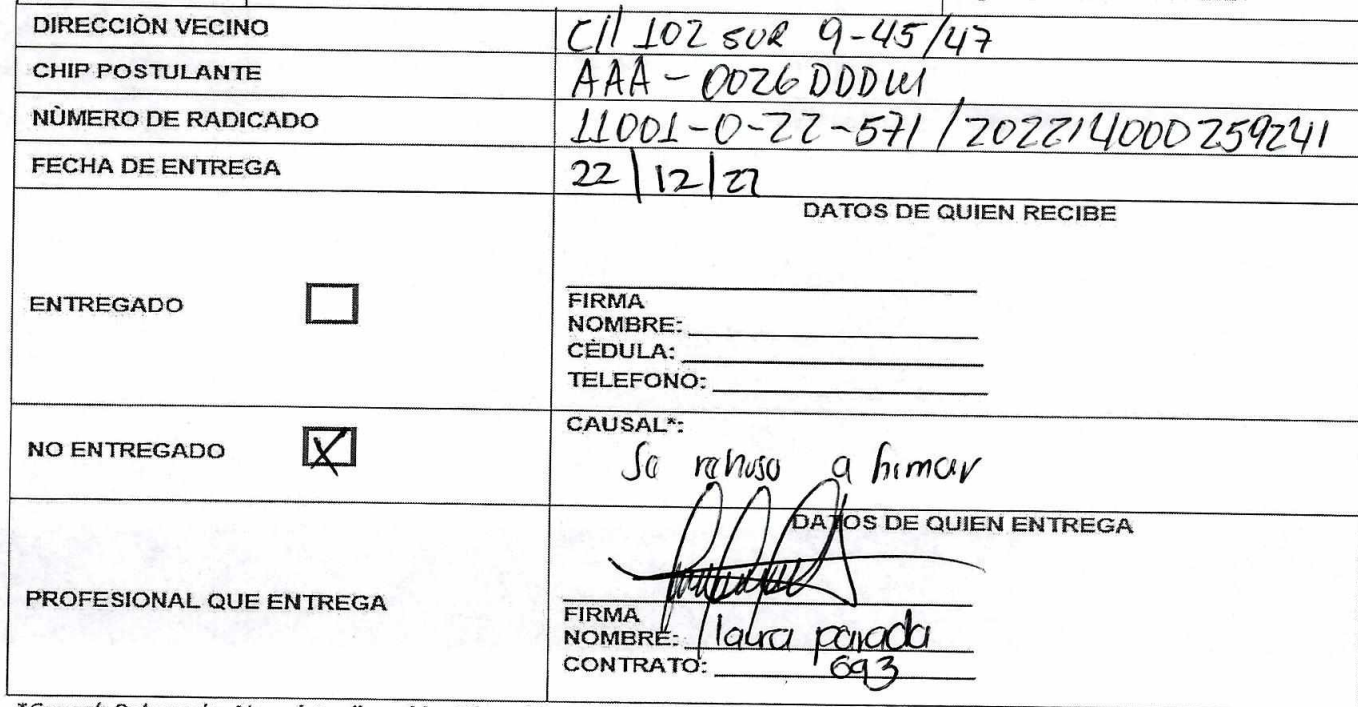 DIRECCIÒN VECINO Cll 102 SUR 9-45/47
CHIP POSTULANTE AAA-0026DDDW
NÙMERO DE RADICADO 11001-0-22-571/202214000259241
FECHA DE ENTREGA 22|12|22
DATOS DE QUIEN RECIBE
ENTREGADO
FIRMA
NOMBRE:
CÈDULA:
TELEFONO:
NO ENTREGADO X
CAUSAL*:
Se rehuso a firmar
DATOS DE QUIEN ENTREGA
PROFESIONAL QUE ENTREGA
FIRMA
NOMBRE: laura parada
CONTRATO: 693